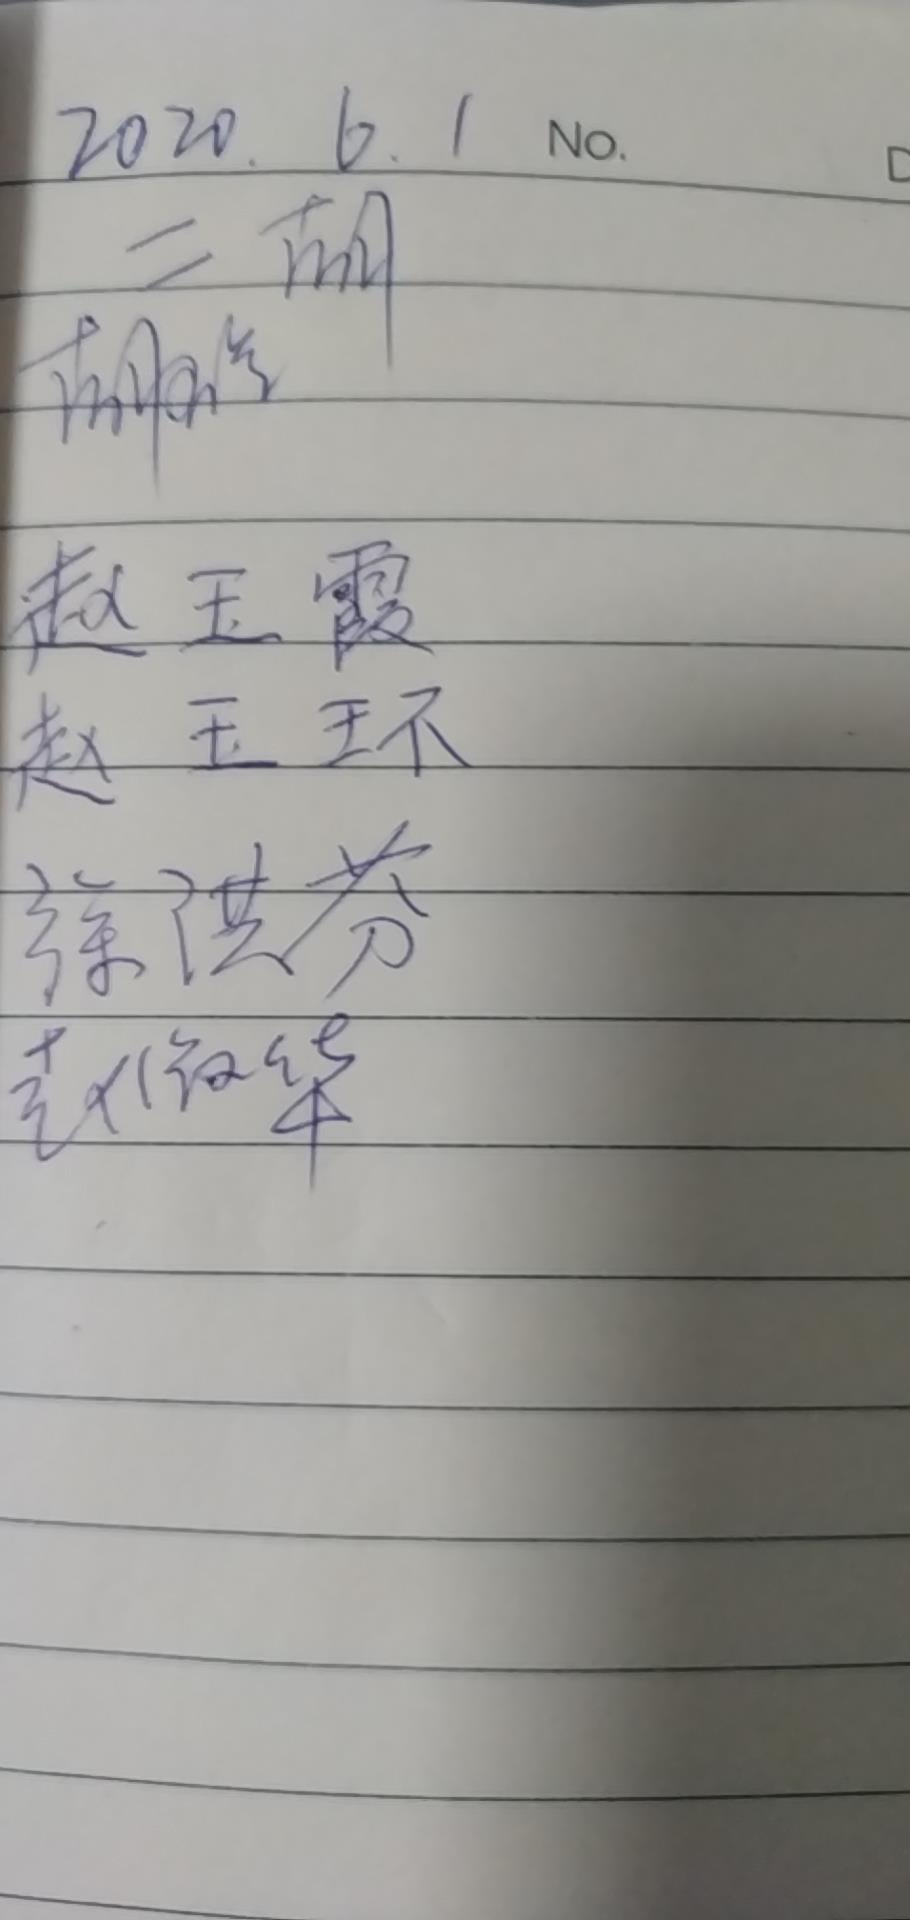 2020. 6. 1 No. D
二胡
胡
赵玉霞
赵玉环
徐洪芬
赵俊华